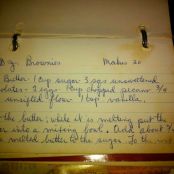 Brownies Makes 20
Butter 1 cup sugar 3 sqs unsweetened
olates - 2 eggs - 1 cup chopped pecans 3/4
unsifted flour 1 tsp vanilla.
the butter; while it is melting put the
er into a mixing bowl. Add about 3/4
melted butter to the sugar. To the